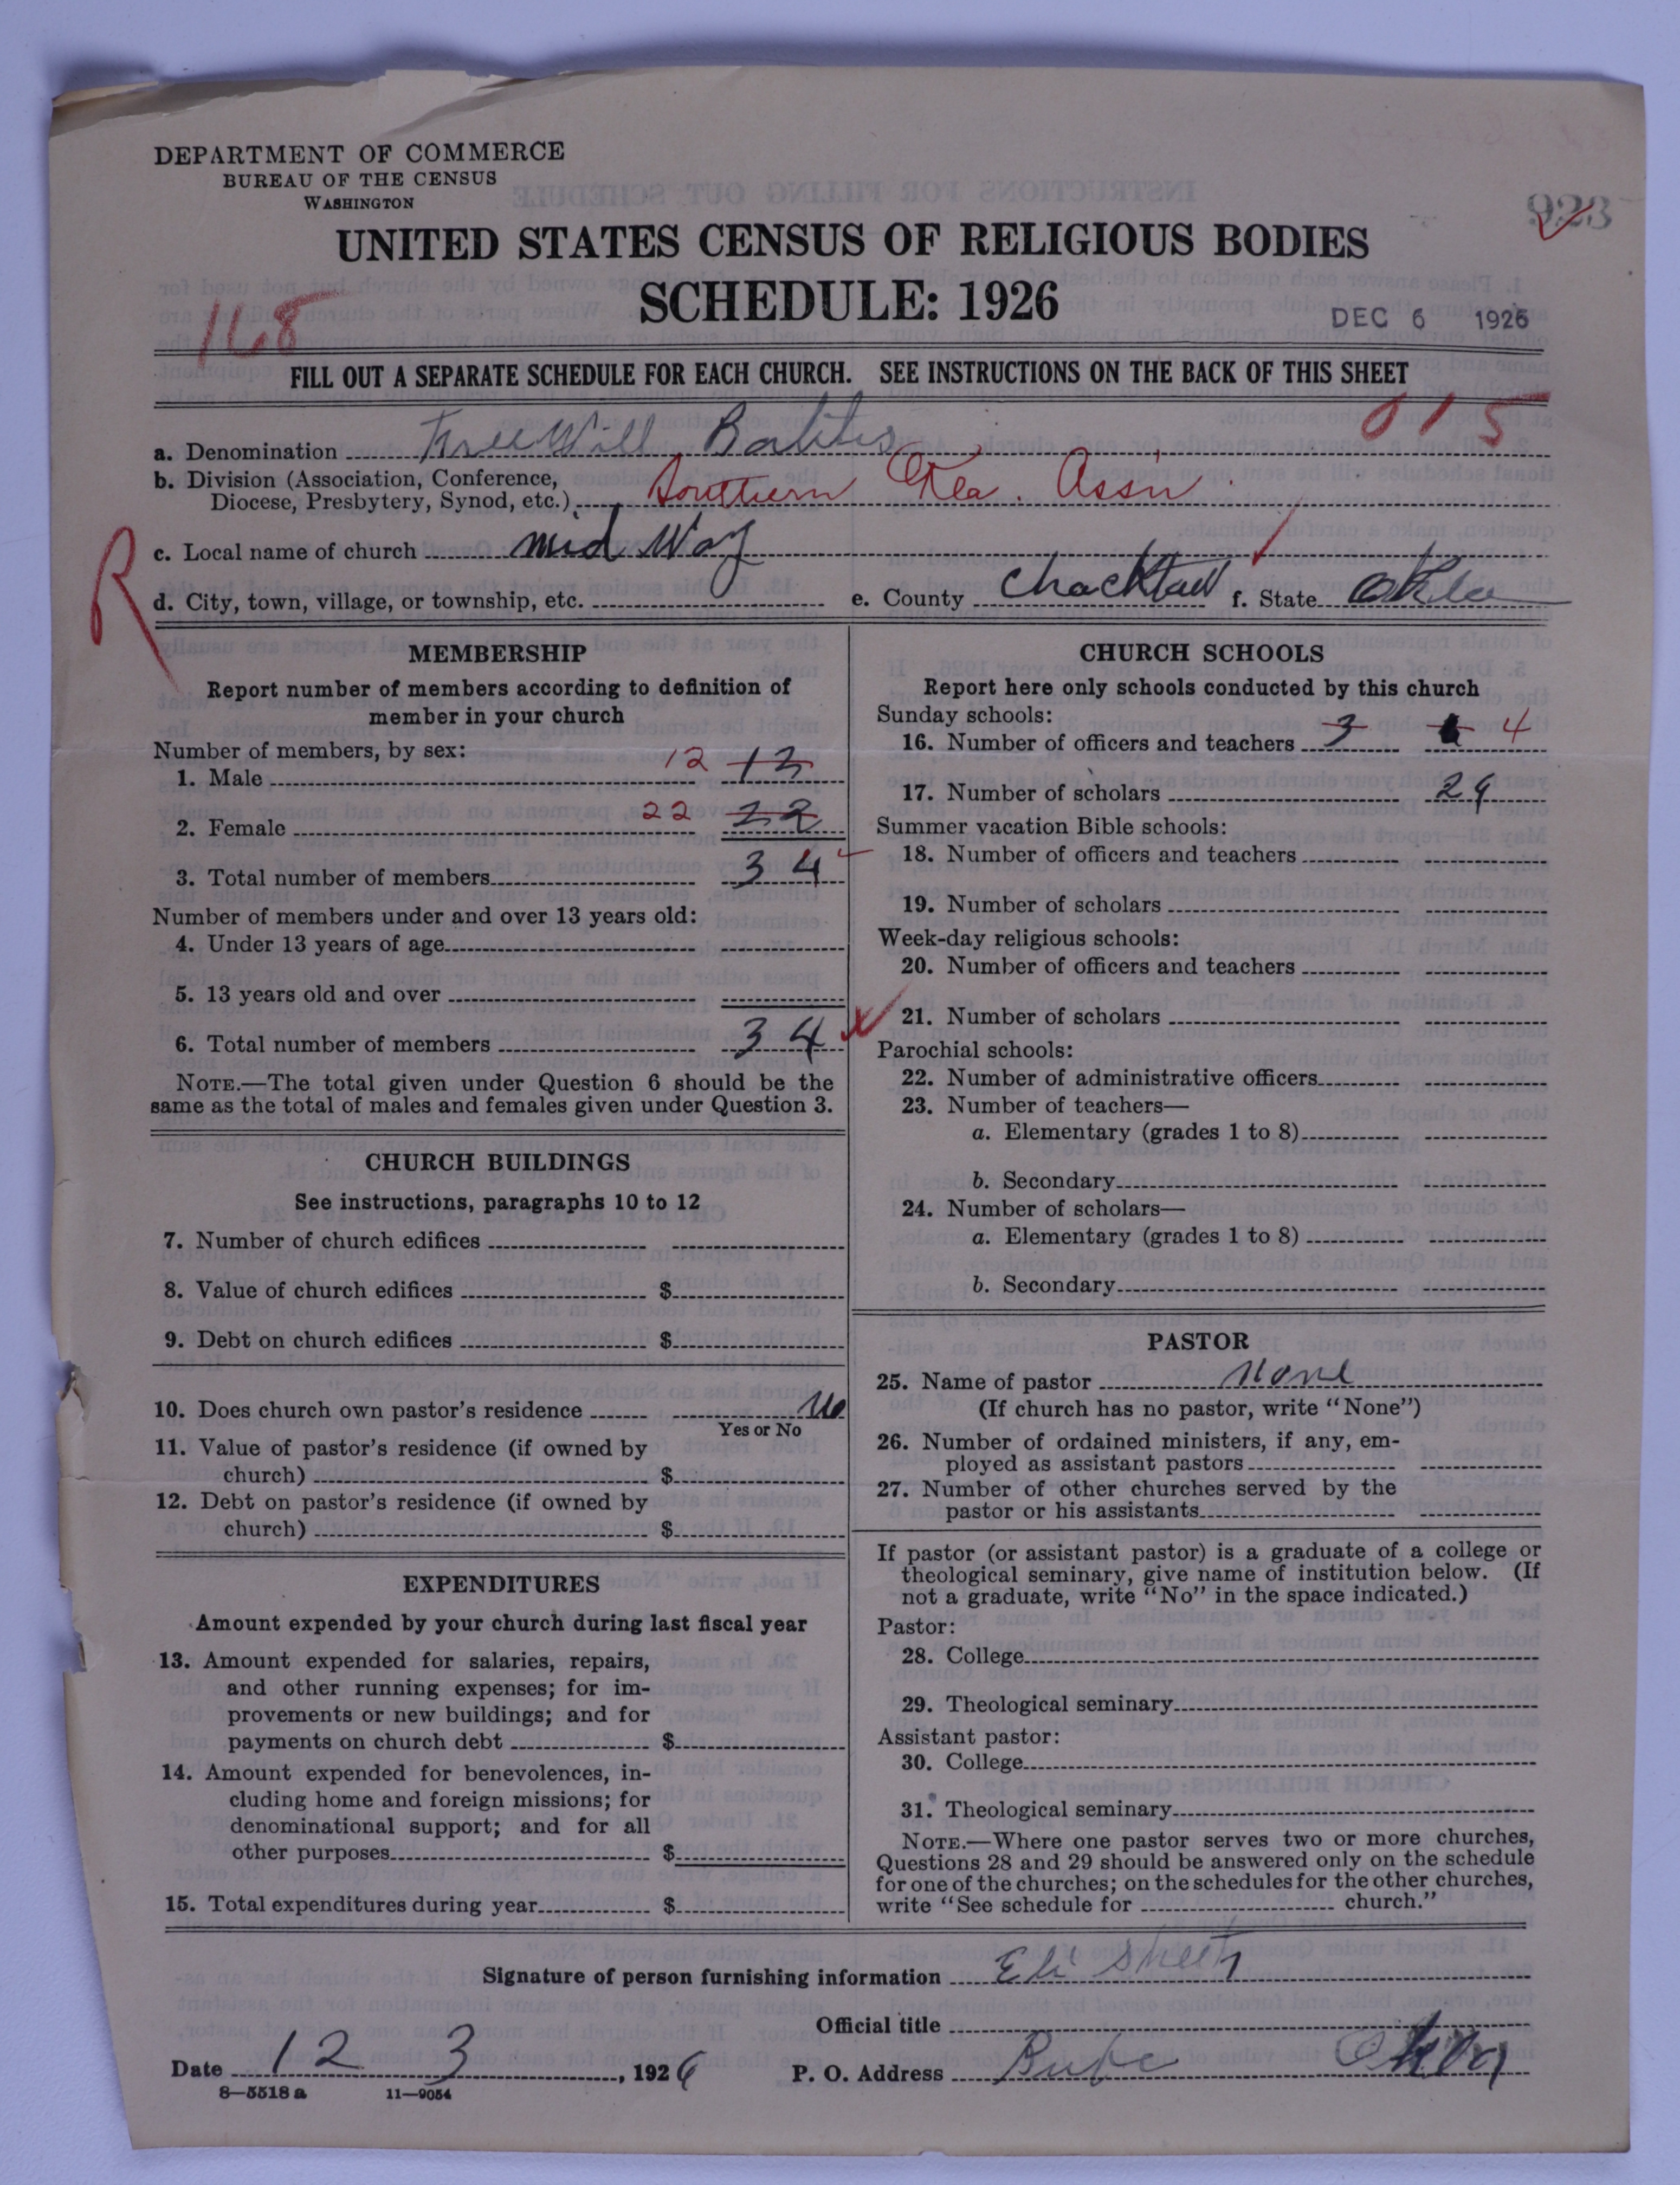 DEPARTMENT OF COMMERCE
BUREAU OF THE CENSUS
WASHINGTON
923
UNITED STATES CENSUS OF RELIGIOUS BODIES
SCHEDULE: 1926
168
DEC 6 1926
FILL OUT A SEPARATE SCHEDULE FOR EACH CHURCH. SEE INSTRUCTIONS ON THE BACK OF THIS SHEET
015
a. Denomination Free Will
b. Division (Association, Conference,
Diocese, Presbytery, Synod, etc.) Southern Okla. Assn.
R
c. Local name of church mid Way
d. City, town, village, or township, etc. e. County Chocktaw f. State Okla
MEMBERSHIP
Report number of members according to definition of
member in your church
Number of members, by sex:
1. Male 12 12
2. Female 22 22
3. Total number of members 34
Number of members under and over 13 years old:
4. Under 13 years of age
5. 13 years old and over
6. Total number of members 34
NOTE.—The total given under Question 6 should be the
same as the total of males and females given under Question 3.
CHURCH BUILDINGS
See instructions, paragraphs 10 to 12
7. Number of church edifices
8. Value of church edifices $
9. Debt on church edifices $
10. Does church own pastor's residence No
Yes or No
11. Value of pastor's residence (if owned by
church) $
12. Debt on pastor's residence (if owned by
church) $
EXPENDITURES
Amount expended by your church during last fiscal year
13. Amount expended for salaries, repairs,
and other running expenses; for im-
provements or new buildings; and for
payments on church debt $
14. Amount expended for benevolences, in-
cluding home and foreign missions; for
denominational support; and for all
other purposes $
15. Total expenditures during year $
CHURCH SCHOOLS
Report here only schools conducted by this church
Sunday schools:
16. Number of officers and teachers 3 4
17. Number of scholars 29
Summer vacation Bible schools:
18. Number of officers and teachers
19. Number of scholars
Week-day religious schools:
20. Number of officers and teachers
21. Number of scholars
Parochial schools:
22. Number of administrative officers
23. Number of teachers—
a. Elementary (grades 1 to 8)
b. Secondary
24. Number of scholars—
a. Elementary (grades 1 to 8)
b. Secondary
PASTOR
25. Name of pastor None
(If church has no pastor, write "None")
26. Number of ordained ministers, if any, em-
ployed as assistant pastors
27. Number of other churches served by the
pastor or his assistants
If pastor (or assistant pastor) is a graduate of a college or
theological seminary, give name of institution below. (If
not a graduate, write "No" in the space indicated.)
Pastor:
28. College
29. Theological seminary
Assistant pastor:
30. College
31. Theological seminary
NOTE.—Where one pastor serves two or more churches,
Questions 28 and 29 should be answered only on the schedule
for one of the churches; on the schedules for the other churches,
write "See schedule for church."
Signature of person furnishing information Eli
Official title
Date 12 3, 1926 P. O. Address Okla
8—5518 a 11—9054